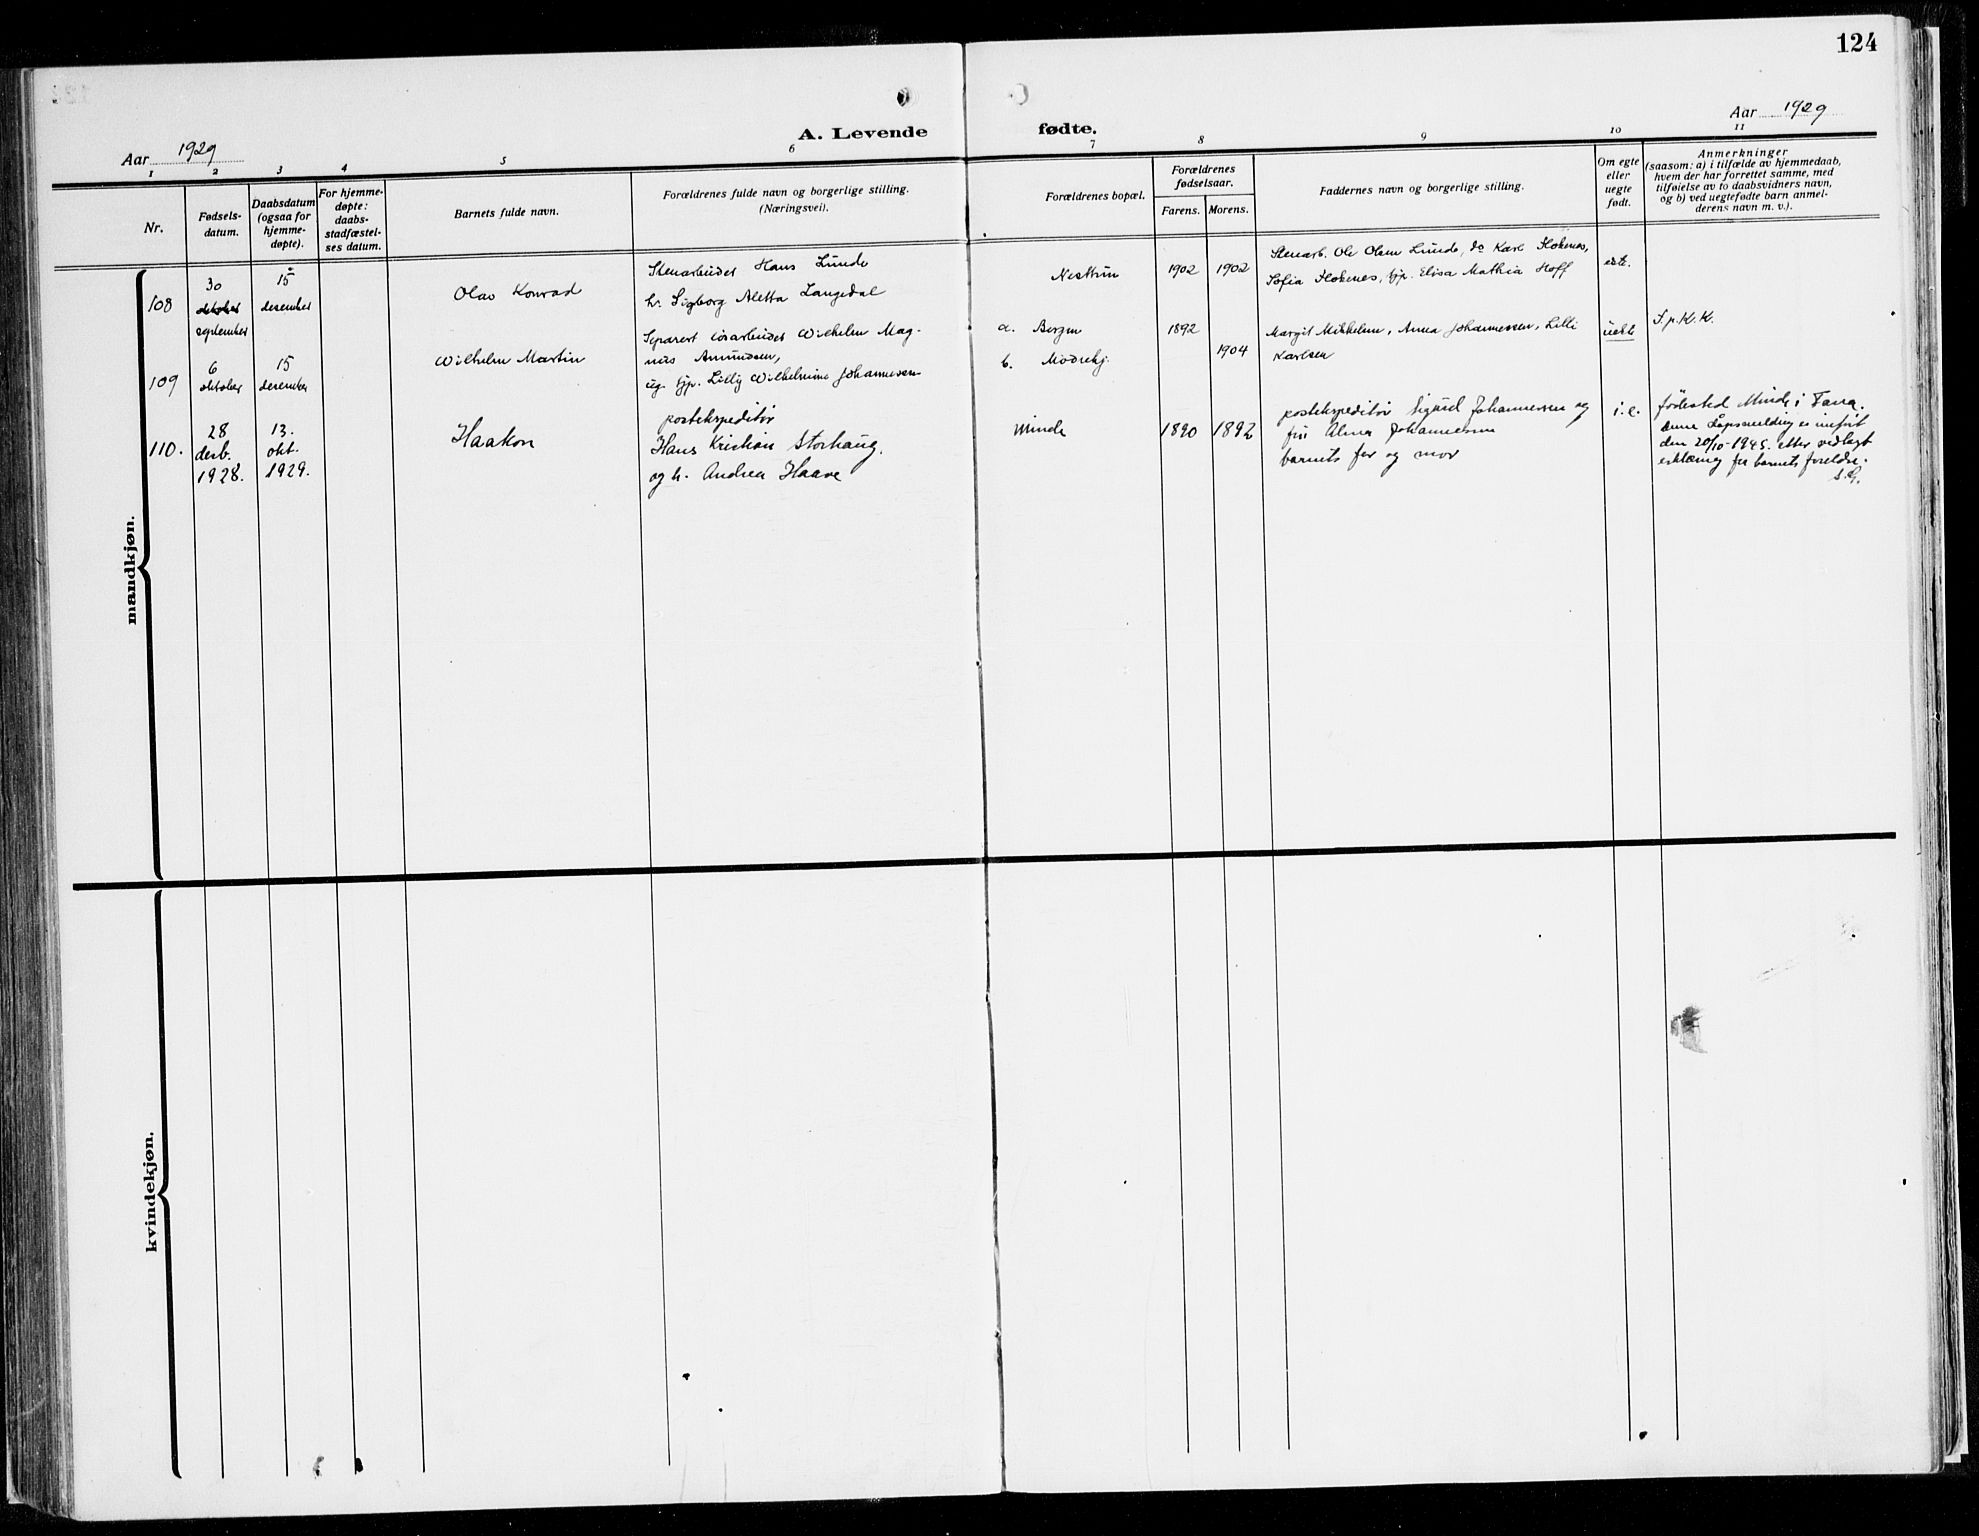 124
Aar 1929
A. Levende fødte.
Aar 1929
1 2 3 4 5 6 7 8 9 10 11
Nr.
Fødsels-
datum.
Daabsdatum
(ogsaa for
hjemme-
døpte).
For hjemme-
døpte:
daabs-
stadfæstel-
ses datum.
Barnets fulde navn.
Forældrenes fulde navn og borgerlige stilling.
(Næringsvei).
Forældrenes bopæl.
Forældrenes
fødselsaar.
Farens. Morens.
Faddernes navn og borgerlige stilling.
Om egte
eller
uegte
født.
Anmerkninger
(saasom: a) i tilfælde av hjemmedaab,
hvem der har forrettet samme, med
tilføielse av to daabsvidners navn,
og b) ved uegtefødte barn anmel-
derens navn m. v.).
mandkjøn.
108
30
oktober
september
15
desember
Olav Konrad
Stenarbeider Hans Lunde
h. Sigborg Aletta Langedal
Nesttun
1902 1902
Stenarb. Ole Olsen Lunde, do Karl
Sofia
Elisa Mathia Hoff
ekte.
109
6
oktober
15
desember
Wilhelm Martin
Separert Wilhelm Mag-
nus Amundsen,
ug. tjp. Lilly Wilhelmine Johannesen
a. Bergen
b.
1892
1904
Margit Mikkelsen, Anna Johannessen, Lilli
Karlsen
uekte
S.p.K.K.
110.
28
desb.
1928.
13.
okt.
1929.
Haakon
postekspeditør
Hans Kristian Storhaug.
og h. Andrea Haave
Minde
1890 1892
postekspeditør Sigurd Johannessen og
fru Alma Johannessen
barnets far og mor
i. e.
fødested Minde i Fana.
denne dåpsmelding er innført
den 20/10-1945. etter vedlagt
erklæring fra barnets foreldre.
S.G.
kvindekjøn.